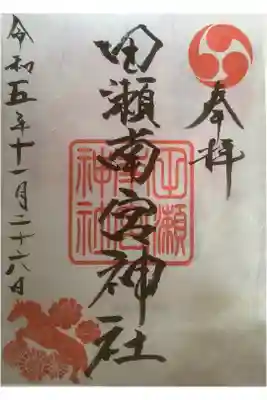 奉拝
田瀬南宮神社
田瀬
神社
令和五年十一月二十六日